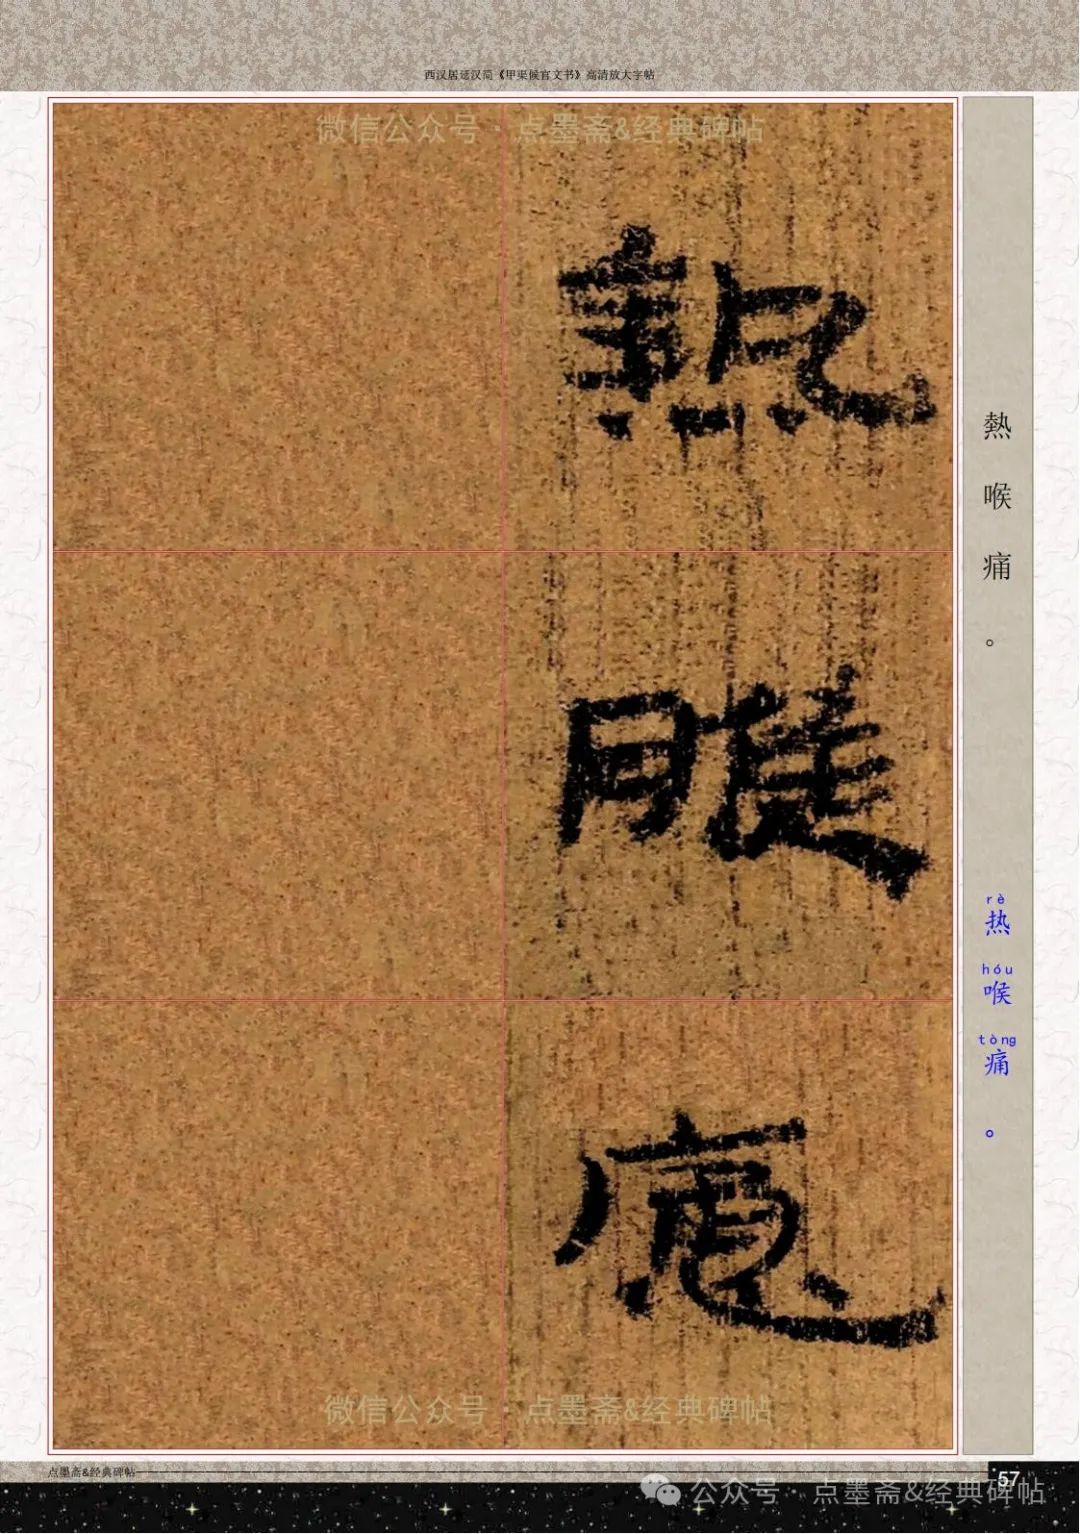 西汉居延汉简《甲渠候官文书》高清放大字帖
微信公众号·点墨斋&经典碑帖
熱
喉
痛
熱喉痛。
rè hóu tòng
热喉痛。
微信公众号·点墨斋&经典碑帖
点墨斋&经典碑帖
57
公众号·点墨斋&经典碑帖